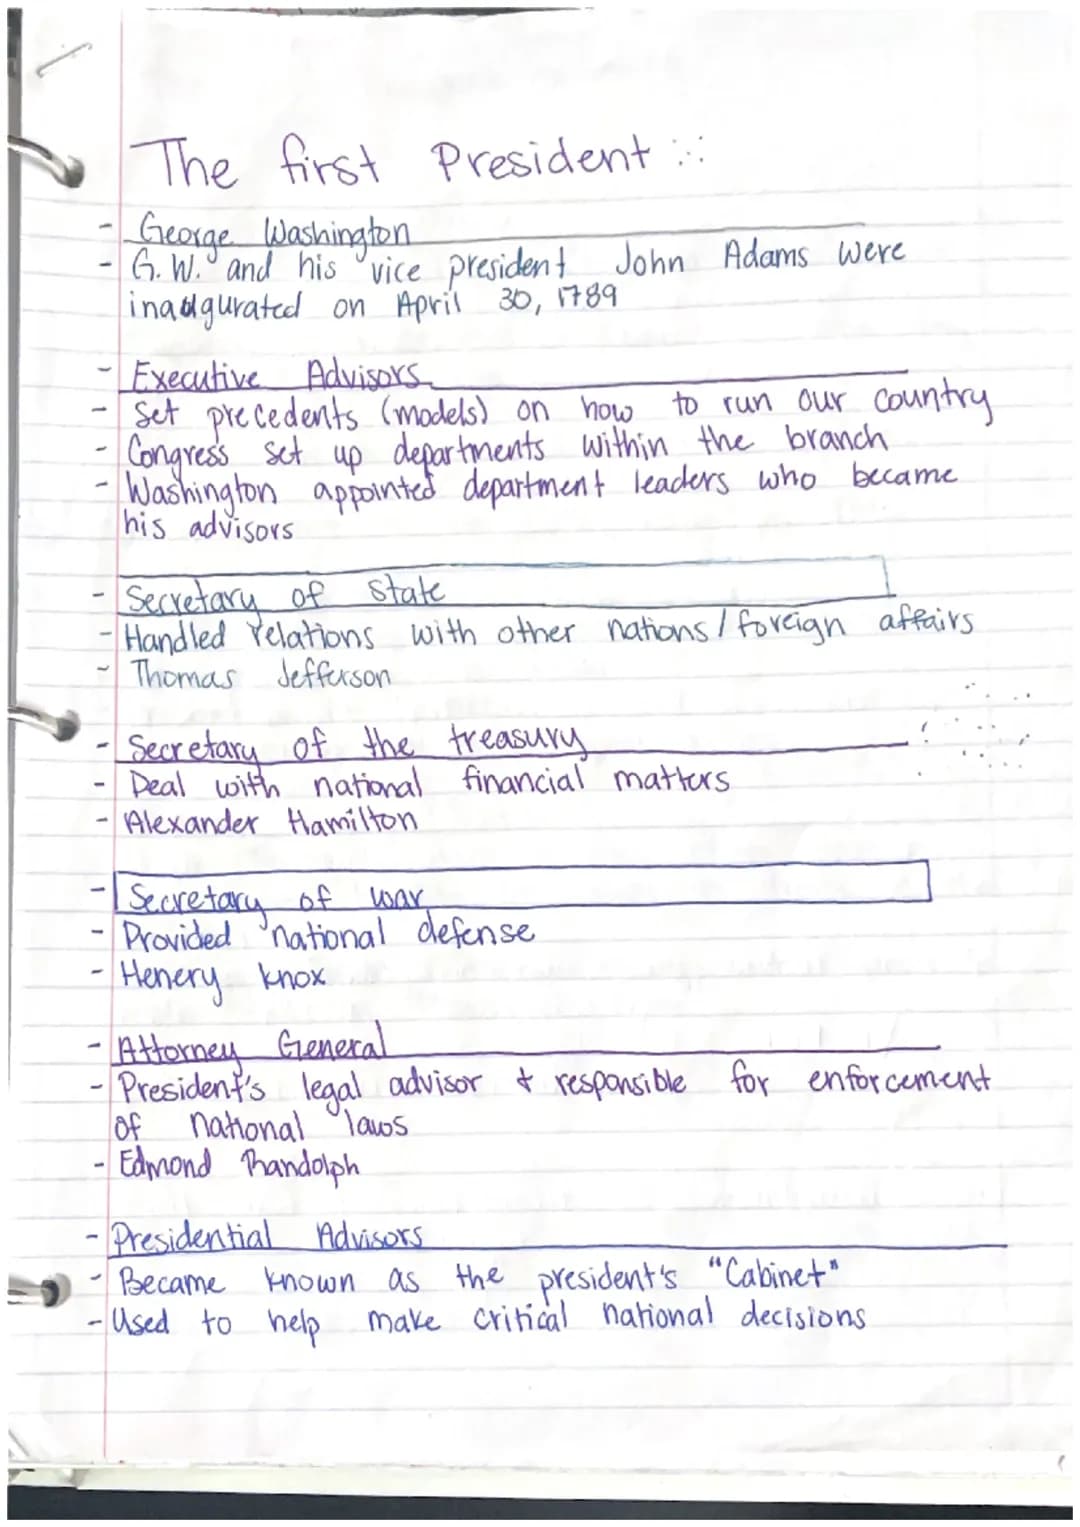 The first President :
- George Washington
- G.W. and his vice president John Adams were
inaugurated on April 30, 1789
- Executive Advisors
- Set precedents (models) on how to run our country
- Congress set up departments within the branch
- Washington appointed department leaders who became
his advisors
- Secretary of state
- Handled relations with other nations / foreign affairs
- Thomas Jefferson
- Secretary of the treasury
- Deal with national financial matters
- Alexander Hamilton
- Secretary of war
- Provided national defense
- Henery Knox
- Attorney General
- President's legal advisor + responsible for enforcement
of national laws
- Edmond Randolph
- Presidential Advisors
- Became known as the president's "Cabinet"
- Used to help make critical national decisions